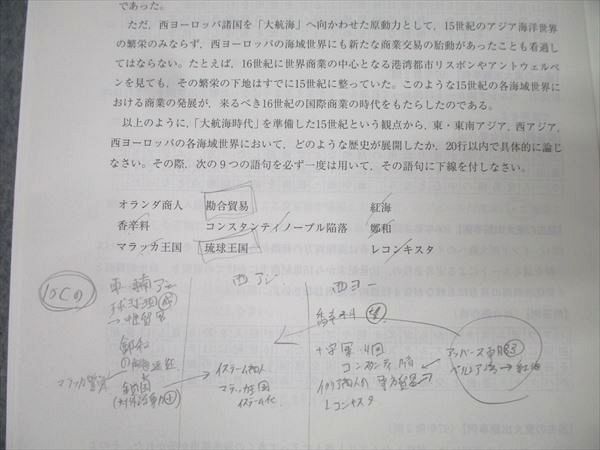 であった。
ただ，西ヨーロッパ諸国を「大航海」へ向かわせた原動力として，15世紀のアジア海洋世界
の繁栄のみならず，西ヨーロッパの海域世界にも新たな商業交易の胎動があったことも看過し
てはならない。たとえば，16世紀に世界商業の中心となる港湾都市リスボンやアントウェルペ
ンを見ても，その繁栄の下地はすでに15世紀に整っていた。このような15世紀の各海域世界に
おける商業の発展が，来るべき16世紀の国際商業の時代をもたらしたのである。
以上のように，「大航海時代」を準備した15世紀という観点から，東・東南アジア，西アジア，
西ヨーロッパの各海域世界において，どのような歴史が展開したか，20行以内で具体的に論じ
なさい。その際，次の９つの語句を必ず一度は用いて，その語句に下線を付しなさい。
オランダ商人 勘合貿易 紅海
香辛料 コンスタンティノープル陥落 鄭和
マラッカ王国 琉球王国 レコンキスタ
15Cの
西アジ
西ヨー
香辛料
鄭和
十字軍
コンスタンティ
イスラーム商人
マラッカ王国
イスラーム化
レコンキスタ
ペルシア湾→紅海